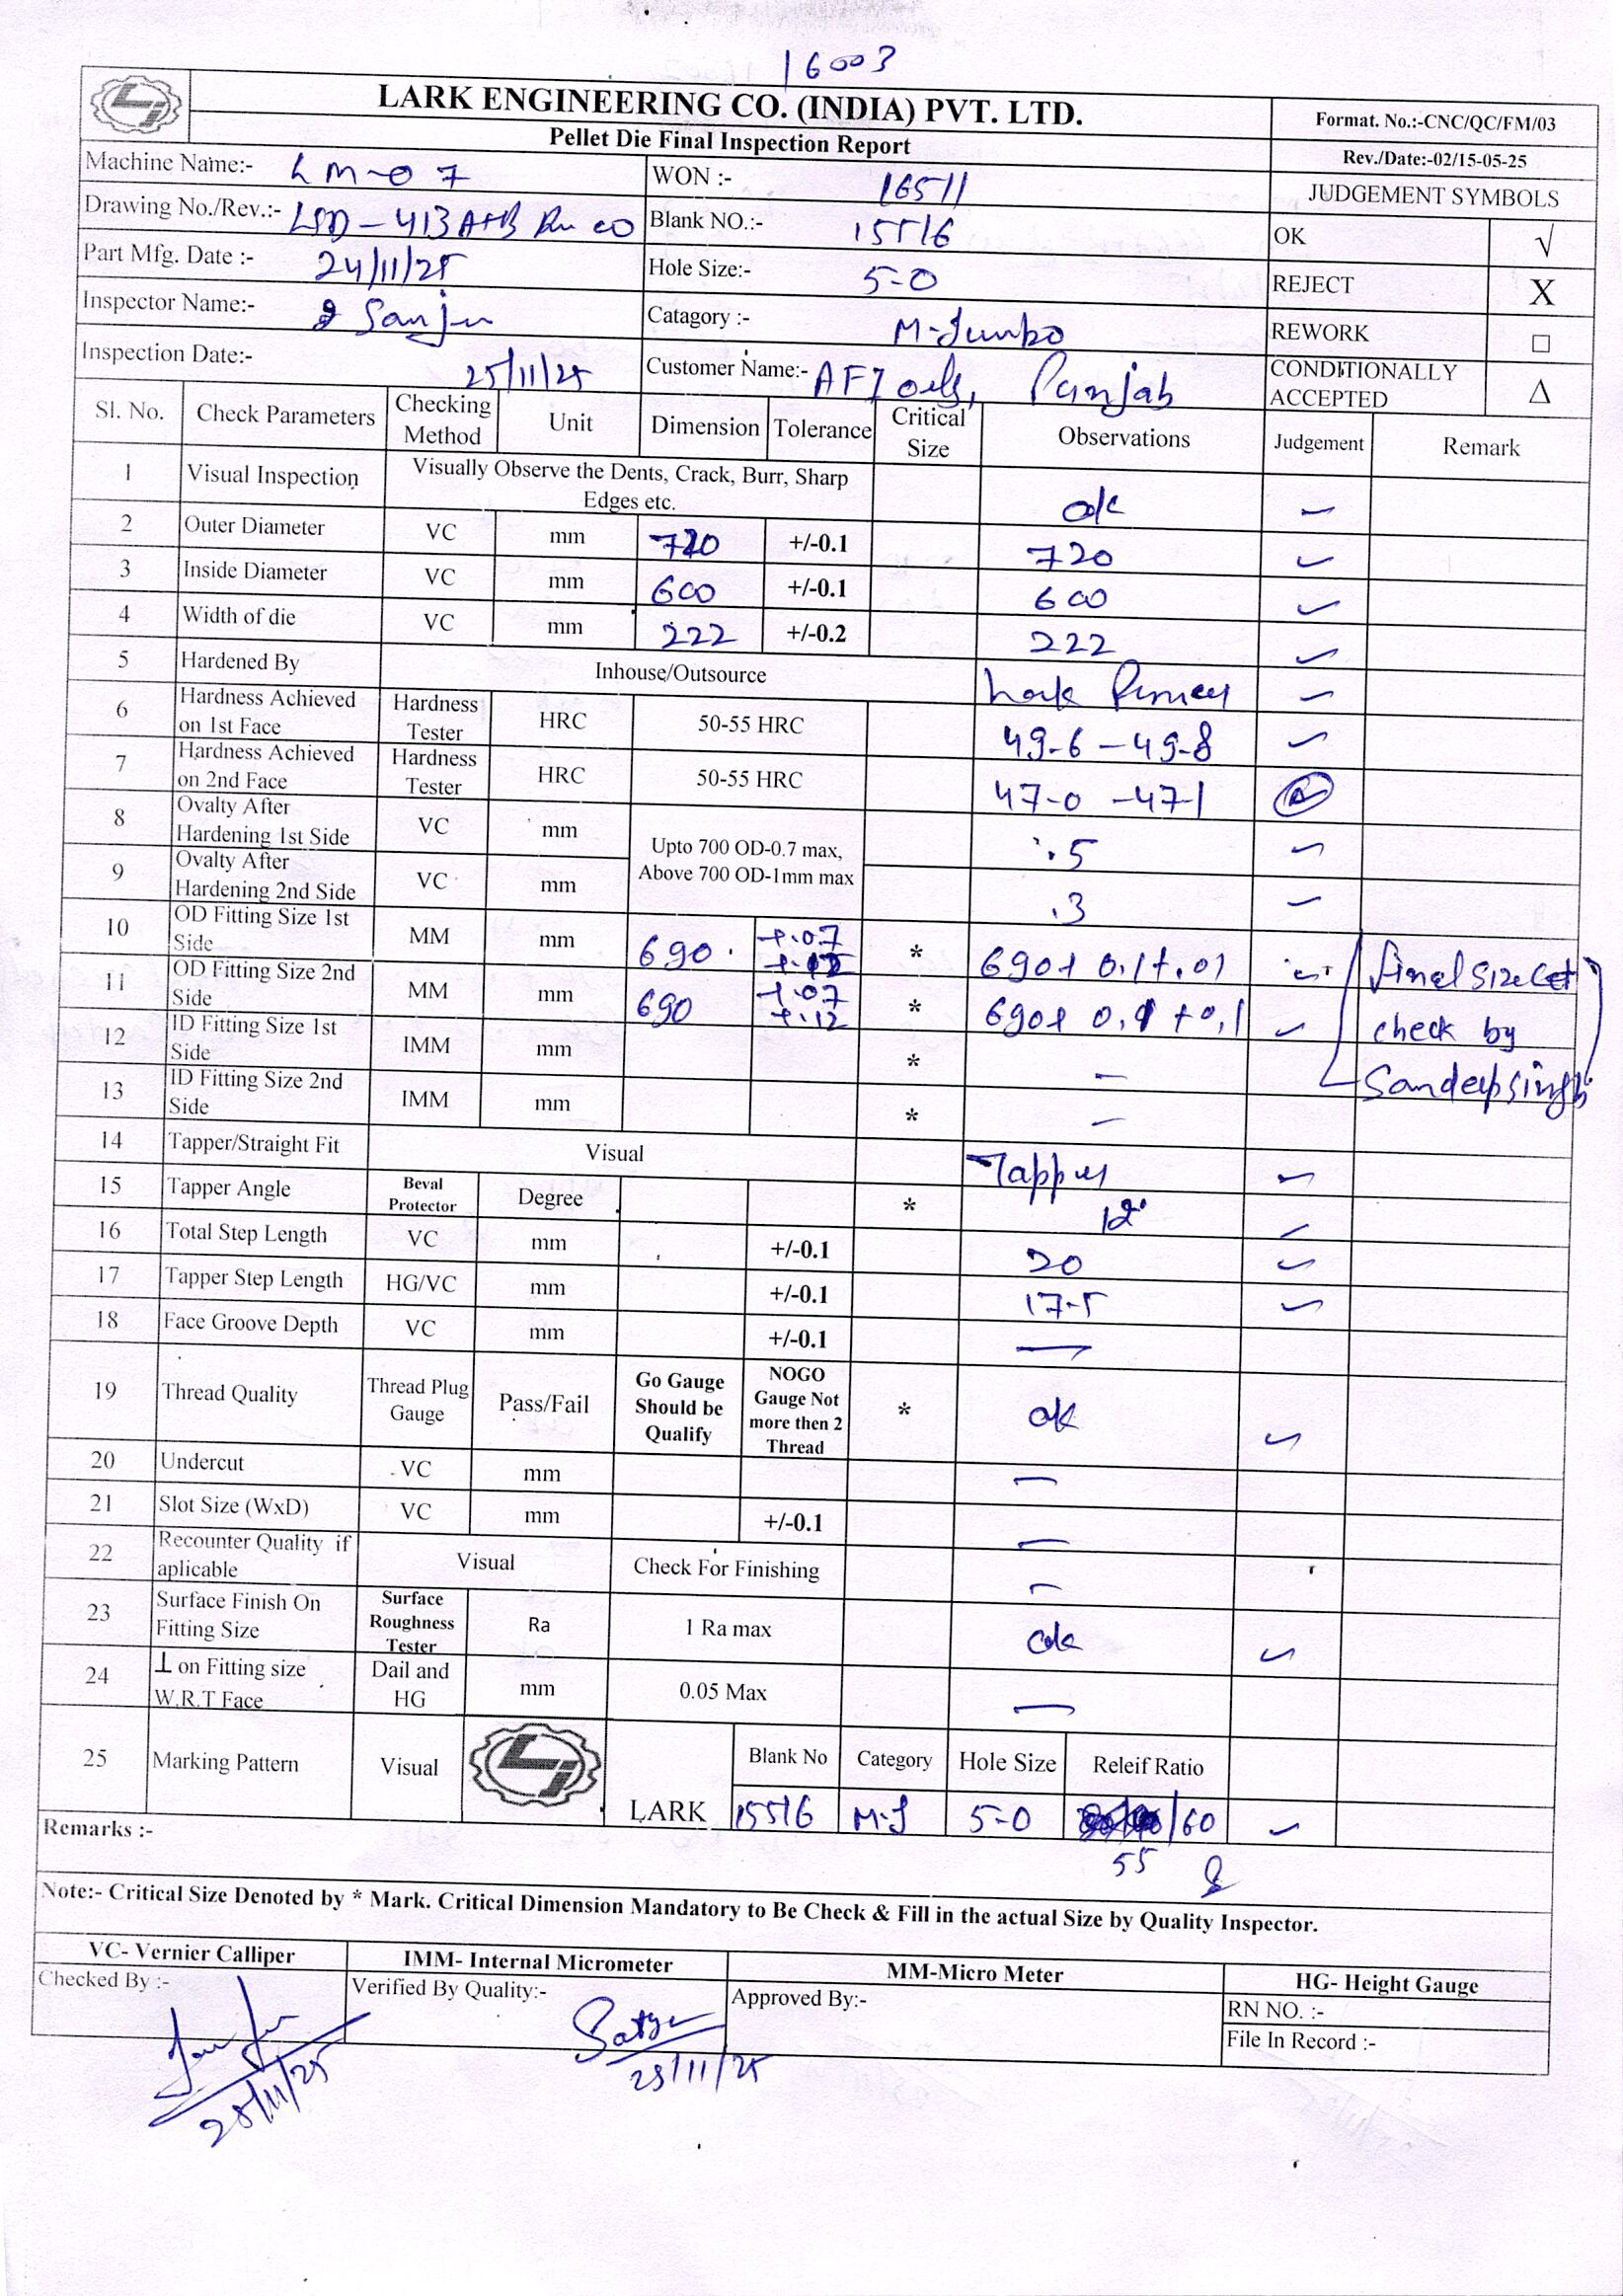 16003
LARK ENGINEERING CO. (INDIA) PVT. LTD.
Pellet Die Final Inspection Report
Format. No.:-CNC/QC/FM/03
Rev./Date:-02/15-05-25
Machine Name:- LM-07 WON :- 16511 JUDGEMENT SYMBOLS
Drawing No./Rev.:- LPD-413 A+B Blank NO.:- 15516 OK √
Part Mfg. Date :- 24/11/25 Hole Size:- 5-0 REJECT X
Inspector Name:- Sanju Catagory :- M-Jumbo REWORK □
Inspection Date:- 25/11/25 Customer Name:- Punjab CONDITIONALLY ACCEPTED Δ
Sl. No. Check Parameters Checking Method Unit Dimension Tolerance Critical Size Observations Judgement Remark
1 Visual Inspection Visually Observe the Dents, Crack, Burr, Sharp Edges etc. ok
2 Outer Diameter VC mm 720 +/-0.1 720
3 Inside Diameter VC mm 600 +/-0.1 600
4 Width of die VC mm 222 +/-0.2 222
5 Hardened By Inhouse/Outsource Lark
6 Hardness Achieved on 1st Face Hardness Tester HRC 50-55 HRC 49-6 – 49-8
7 Hardness Achieved on 2nd Face Hardness Tester HRC 50-55 HRC 47-0 – 47-1
8 Ovalty After Hardening 1st Side VC mm Upto 700 OD-0.7 max, Above 700 OD-1mm max .5
9 Ovalty After Hardening 2nd Side VC mm .3
10 OD Fitting Size 1st Side MM mm 690 +.07 +.12 * 690+ 0.1+.01
11 OD Fitting Size 2nd Side MM mm 690 +.07 +.12 * 690+ 0.1 +0.1
final size
check by
Sandeep singh
12 ID Fitting Size 1st Side IMM mm * –
13 ID Fitting Size 2nd Side IMM mm * –
14 Tapper/Straight Fit Visual Tapper
15 Tapper Angle Beval Protector Degree * 12°
16 Total Step Length VC mm +/-0.1 20
17 Tapper Step Length HG/VC mm +/-0.1 17-5
18 Face Groove Depth VC mm +/-0.1 –
19 Thread Quality Thread Plug Gauge Pass/Fail Go Gauge Should be Qualify NOGO Gauge Not more then 2 Thread * ok
20 Undercut VC mm –
21 Slot Size (WxD) VC mm +/-0.1 –
22 Recounter Quality if aplicable Visual Check For Finishing –
23 Surface Finish On Fitting Size Surface Roughness Tester Ra 1 Ra max ok
24 ⊥ on Fitting size W.R.T Face Dail and HG mm 0.05 Max –
25 Marking Pattern Visual LARK Blank No Category Hole Size Releif Ratio
15516 M-J 5-0 /60
55
Remarks :-
Note:- Critical Size Denoted by * Mark. Critical Dimension Mandatory to Be Check & Fill in the actual Size by Quality Inspector.
VC- Vernier Calliper IMM- Internal Micrometer MM-Micro Meter HG- Height Gauge
Checked By :- Verified By Quality:- Approved By:- RN NO. :-
File In Record :-
25/11/25
25/11/25